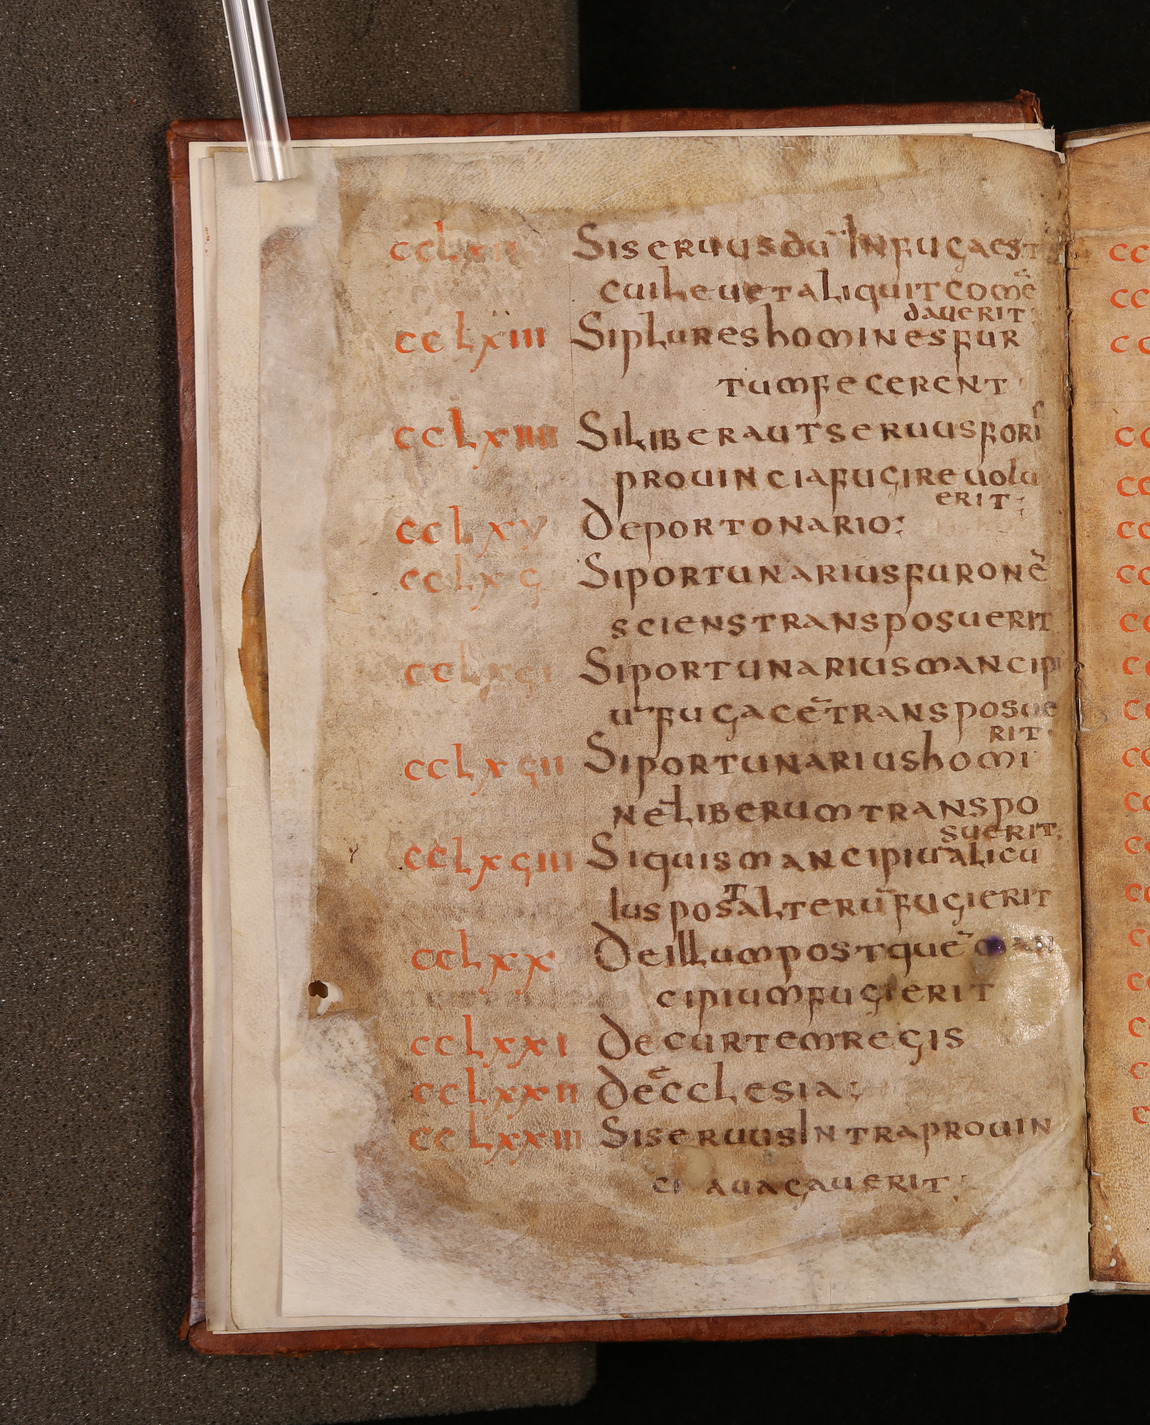 cclxii Siseruusdū Infugaest
cuileuetaliquitcomē
dauerit
cclxiii Siplureshominesfur
tumfecerent
cclxiiii Siliberautseruusfori
prouinciafugireuolu
erit;
cclxv Deportonario;
cclxς Siportunariusfuronē
scienstransposuerit
cclxςi Siportunariusmancipi
ū fugacētranspos​ue
rit
cclxςii Siportunariushomi
nēliberumtranspo
suerit;
cclxςiii Siquismancipiūalicu
iuspostalterūfugierit
cclxx Deillumpostquē man
cipiumfugierit
cclxxi Decurtemregis
cclxxii Deęcclesia;
cclxxiii SiseruusIntraprouin
ci auagauerit;
cc
cc
cc
cc
cc
cc
cc
cc
cc
cc
cc
cc